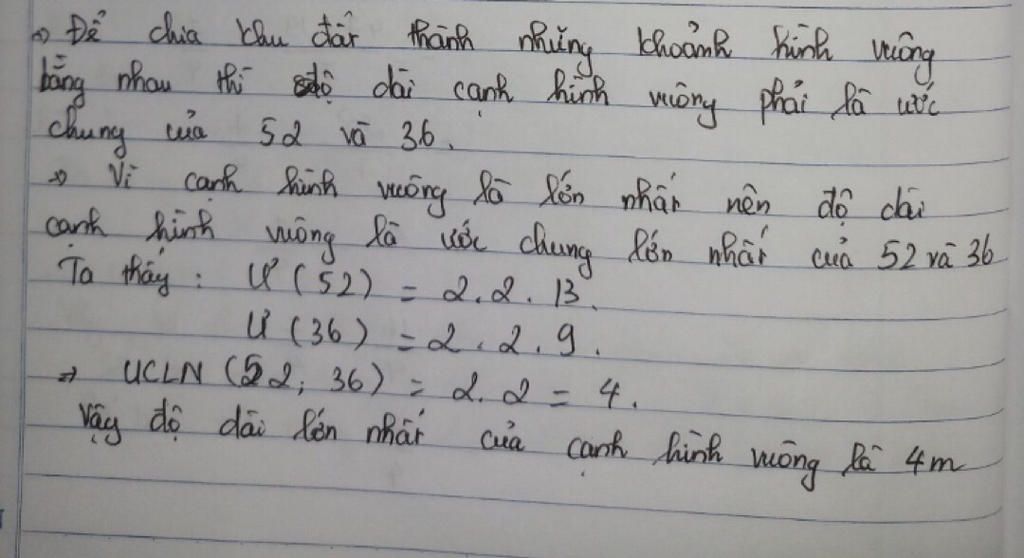 → Để chia khu đất thành những khoảnh hình vuông
bằng nhau thì độ dài cạnh hình vuông phải là ước
chung của 52 và 36.
→ Vì cạnh hình vuông là lớn nhất nên độ dài
cạnh hình vuông là ước chung lớn nhất của 52 và 36
Ta thấy : Ư (52) = 2.2.13.
Ư (36) = 2.2.9.
→ UCLN (52; 36) = 2.2 = 4.
Vậy độ dài lớn nhất của cạnh hình vuông là 4m